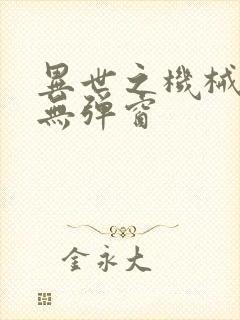 異世之機械
無彈窗
金永大